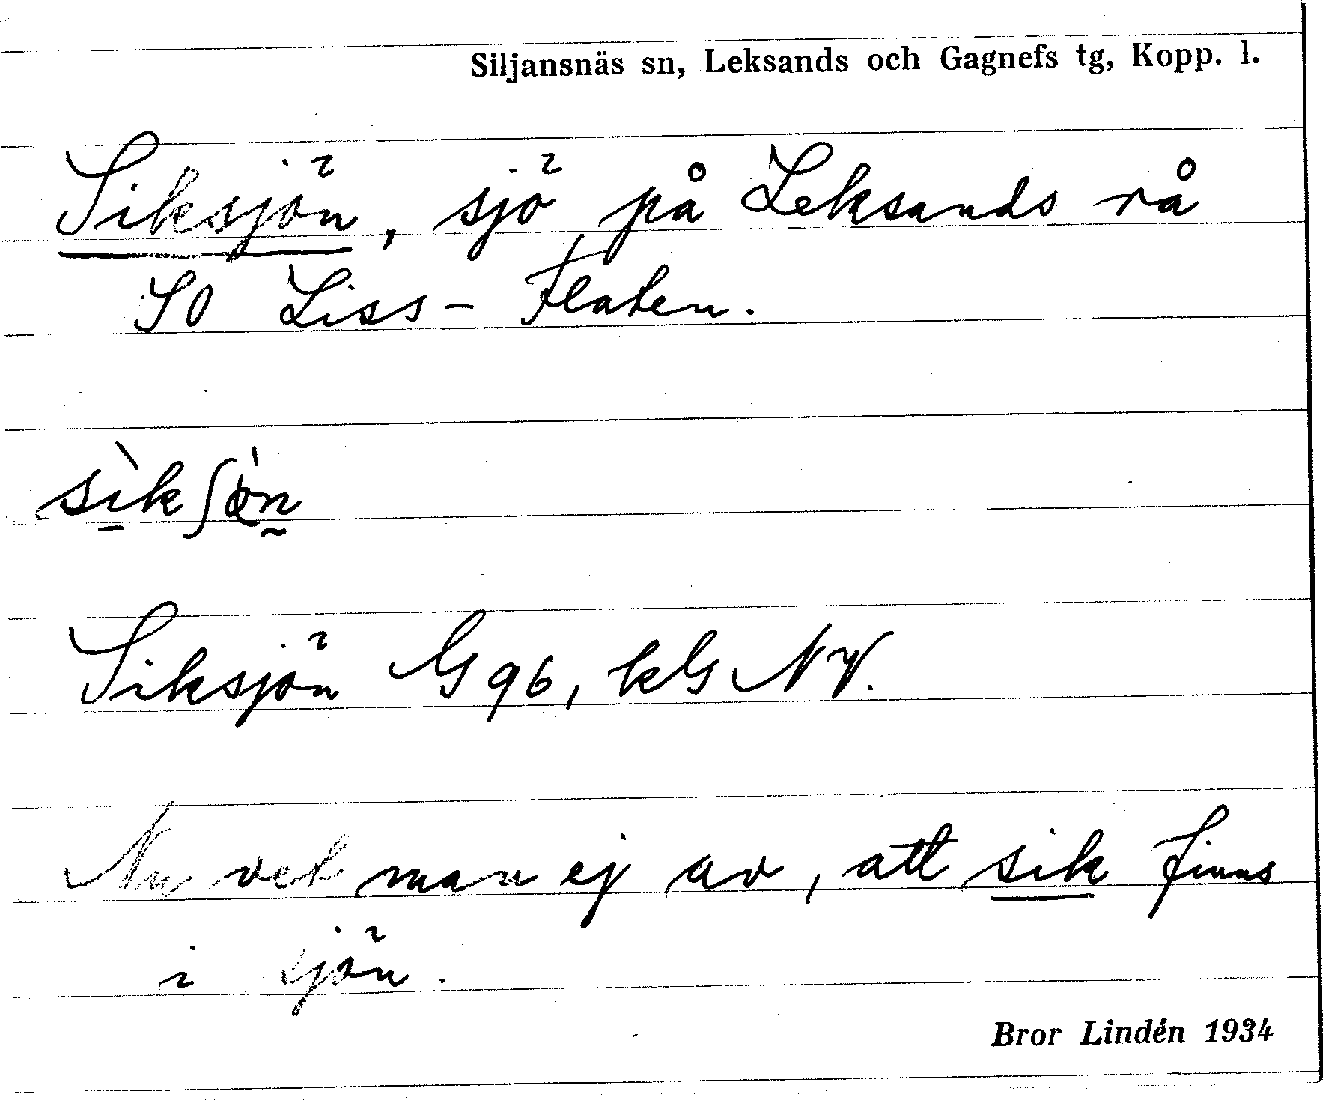 Siljansnäs sn, Leksands och Gagnefs tg, Kopp. l.
Siksjön, sjö på Leksands rå
SO Liss-Flaten.
sìkʃön
Siksjön G 96, kG NV.
Nu vet man ej av, att sik finns
i sjön.
Bror Lindén 1934